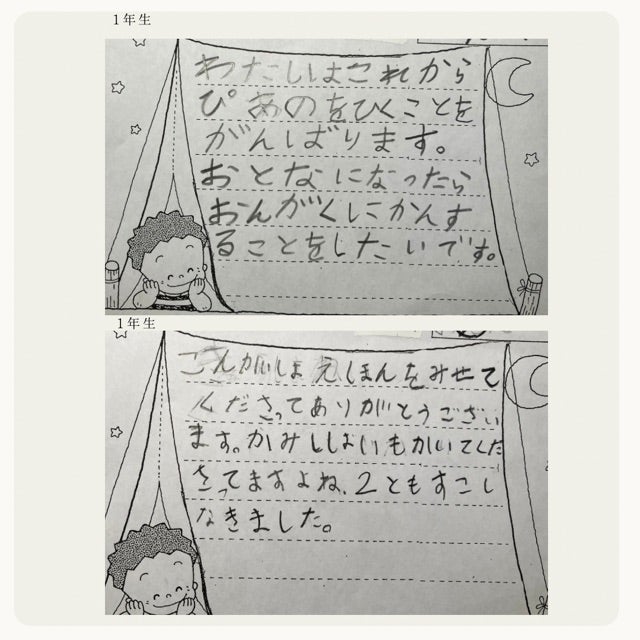 1年生
わたしはこれから
ぴあのをひくことを
がんばります。
おとなになったら
おんがくにかんす
ることをしたいです。
1年生
こんかいは えほんをみせて
くださってありがとうござい
ます。かみししばいもかいてくだ
さってますよね、2ともすこし
なきました。